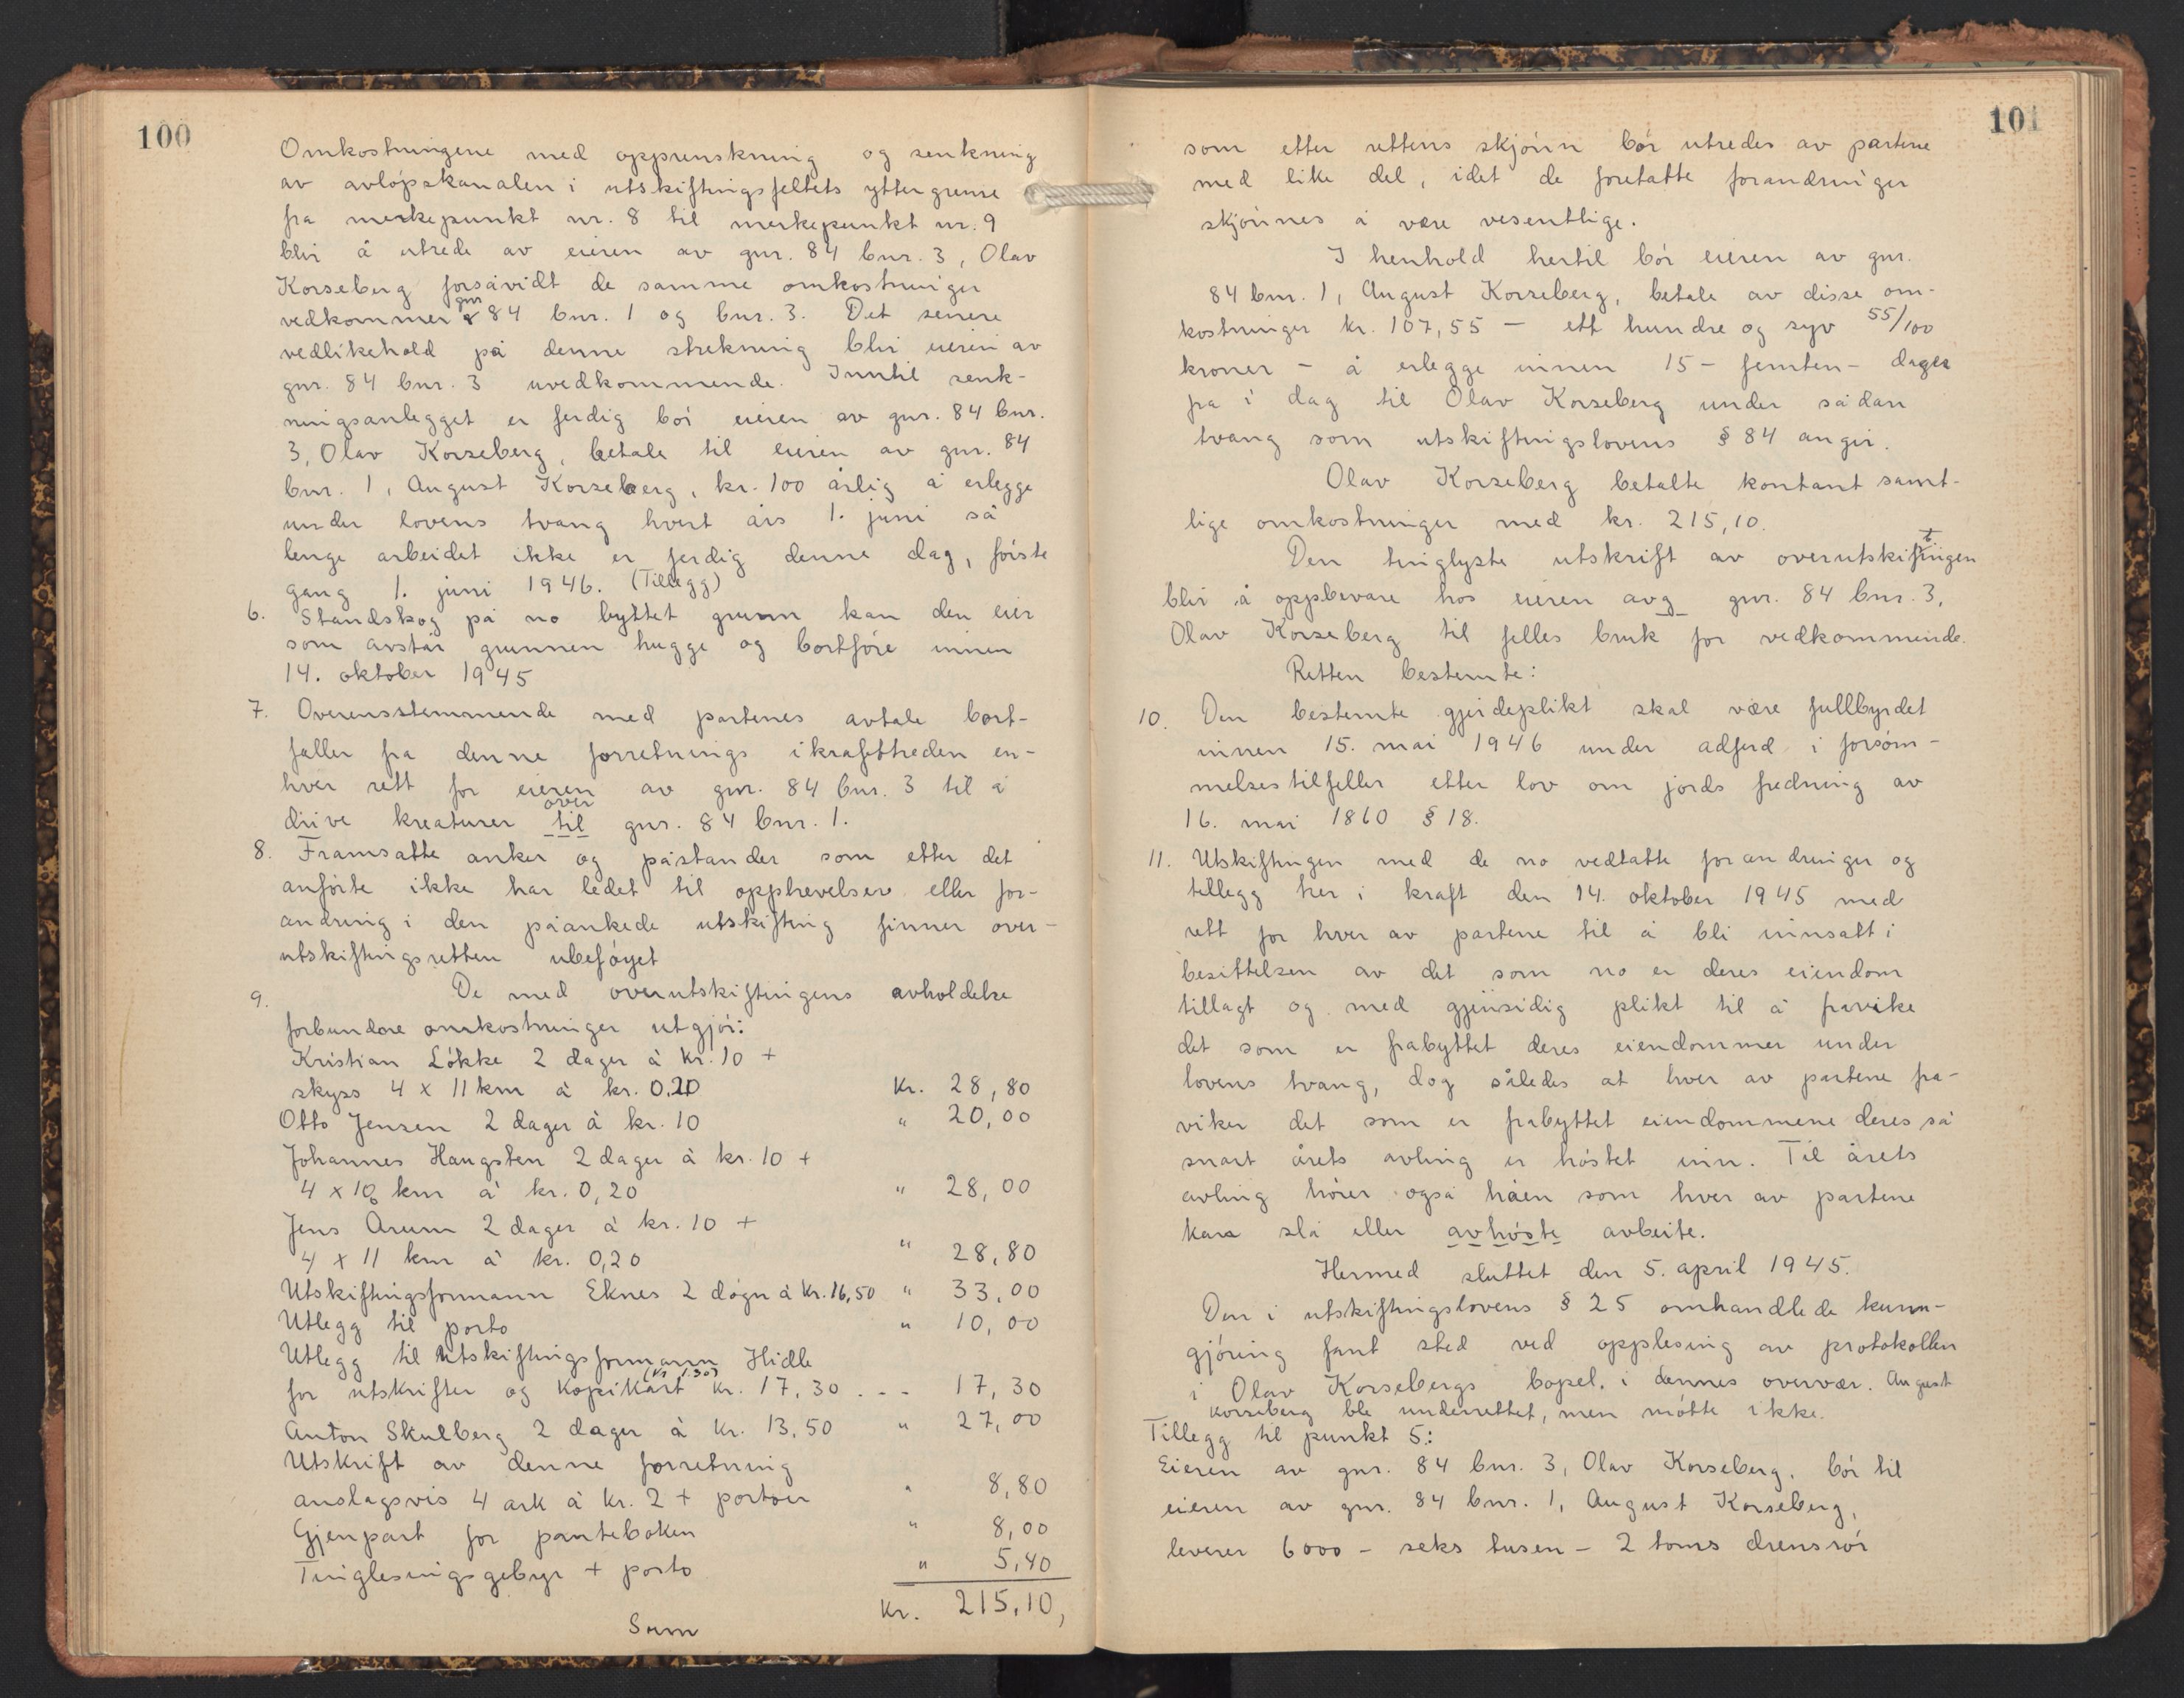 100
Omkostningene med opprenskning og senkning
av avløpskanalen i utskiftningsfeltets yttergrense
fra merkepunkt nr. 8 til merkepunkt nr. 9
blir å utrede av eieren av gnr. 84 bnr. 3, Olav
Korseberg forsåvidt de samme omkostninger
gnr
vedkommer 84 bnr. 1 og bnr. 3. Det senere
vedlikehold på denne strekning blir eieren av
gnr. 84 bnr. 3 uvedkommende. Inntil senk-
ningsanlegget er ferdig bør eieren av gnr. 84 bnr.
3, Olav Korseberg, betale til eieren av gnr. 84
bnr. 1, August Korseberg, kr. 100 årlig å erlegge
under lovens tvang hvert års 1. juni så
lenge arbeidet ikke er ferdig denne dag, første
gang 1. juni 1946. (Tillegg)
6. Standskog på no byttet grunn kan den eier
som avstår grunnen hugge og bortføre innen
14. oktober 1945
7. Overensstemmende med partenes avtale bort-
faller fra denne forretnings ikrafttreden en-
hver rett for eieren av gnr. 84 bnr. 3 til å
over
drive kreaturer til gnr. 84 bnr. 1.
8. Framsatte anker og påstander som etter det
anførte ikke har ledet til opphevelser eller for-
andring i den påankede utskifting finner over-
utskiftingsretten ubeføyet
9. De med overutskiftingens avholdelse
forbundne omkostninger utgjør:
Kristian Løkke 2 dager à kr. 10 +
skyss 4 x 11 km à kr. 0.20 Kr. 28,80
Otto Jensen 2 dager à kr. 10 " 20,00
Johannes Haugsten 2 dager à kr. 10 +
4 x 10 km à kr. 0,20 " 28,00
Jens Arum 2 dager à kr. 10 +
4 x 11 km à kr. 0,20 " 28,80
Utskiftingsformann Eknes 2 døgn à kr. 16,50 " 33,00
Utlegg til porto " 10,00
Utlegg til utskiftingsformann Hidle
(kr 1.30)
for utskrifter og kopikart kr. 17,30 . - - 17,30
Anton Skulberg 2 dager à kr. 13,50 " 27,00
Utskrift av denne forretning
anslagsvis 4 ark à kr. 2 + portoer " 8,80
Gjenpart for panteboken " 8,00
Tinglesingsgebyr + porto " 5,40
Sum Kr. 215,10,
101
som etter rettens skjønn bør utredes av partene
med like del, idet de foretatte forandringer
skjønnes å være vesentlige.
I henhold hertil bør eieren av gnr.
84 bnr. 1, August Korseberg, betale av disse om-
kostninger kr. 107,55 - ett hundre og syv 55/100
kroner - å erlegge innen 15 - femten - dager
fra i dag til Olav Korseberg under sådan
tvang som utskiftingslovens § 84 angir.
Olav Korseberg betalte kontant samt-
lige omkostninger med kr. 215,10.
t
Den tinglyste utskrift av overutskiftingen
blir å oppbevare hos eieren avg gnr. 84 bnr. 3,
Olav Korseberg til felles bruk for vedkommende.
Retten bestemte:
10. Den bestemte gjerdeplikt skal være fullbyrdet
innen 15. mai 1946 under adferd i forsøm-
melsestilfeller etter lov om jords fredning av
16. mai 1860 § 18.
11. Utskiftingen med de no vedtatte forandringer og
tillegg trer i kraft den 14. oktober 1945 med
rett for hver av partene til å bli innsatt i
besittelsen av det som no er deres eiendom
tillagt og med gjensidig plikt til å fravike
det som er frabyttet deres eiendommer under
lovens tvang, dog således at hver av partene fra-
viker det som er frabyttet eiendommene deres så
snart årets avling er høstet inn. Til årets
avling hører også håen som hver av partene
kan slå eller avhøste avbeite.
Hermed sluttet den 5. april 1945.
Den i utskiftingslovens § 25 omhandlede kunn-
gjøring fant sted ved opplesing av protokollen
i Olav Korsebergs bopel, i dennes overvær. August
Korseberg ble underrettet, men møtte ikke.
Tillegg til punkt 5:
Eieren av gnr. 84 bnr. 3, Olav Korseberg, bør til
eieren av gnr. 84 bnr. 1, August Korseberg,
leverer 6000 - seks tusen - 2 toms drensrør